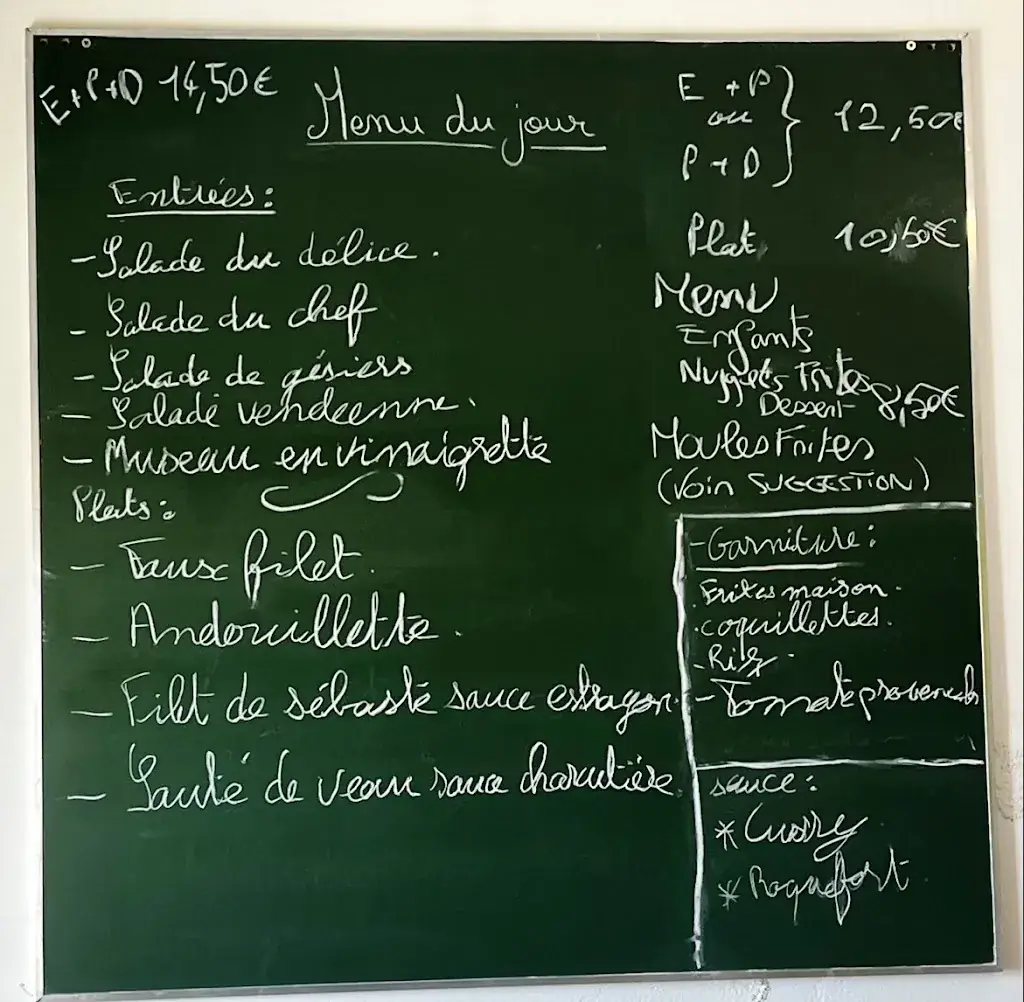 E+P+D 14,50€
Menu du jour
E + P
ou
P + D
12,50€
Entrées:
- Salade du délice.
- Salade du chef
- Salade de gésiers
- Salade vendéenne.
- Museau en vinaigrette
Plats:
- Faux filet.
- Andouillette.
- Filet de sébaste sauce estragon.
- Sauté de veau sauce charcutière.
Plat 10,50€
Menu
Enfants
Nuggets Frites
Dessert 8,50€
Moules Frites
(Voir SUGGESTION)
- Garniture:
. Frites maison.
. coquillettes.
- Riz.
- Tomate provençales
sauce:
* Curry
* Roquefort